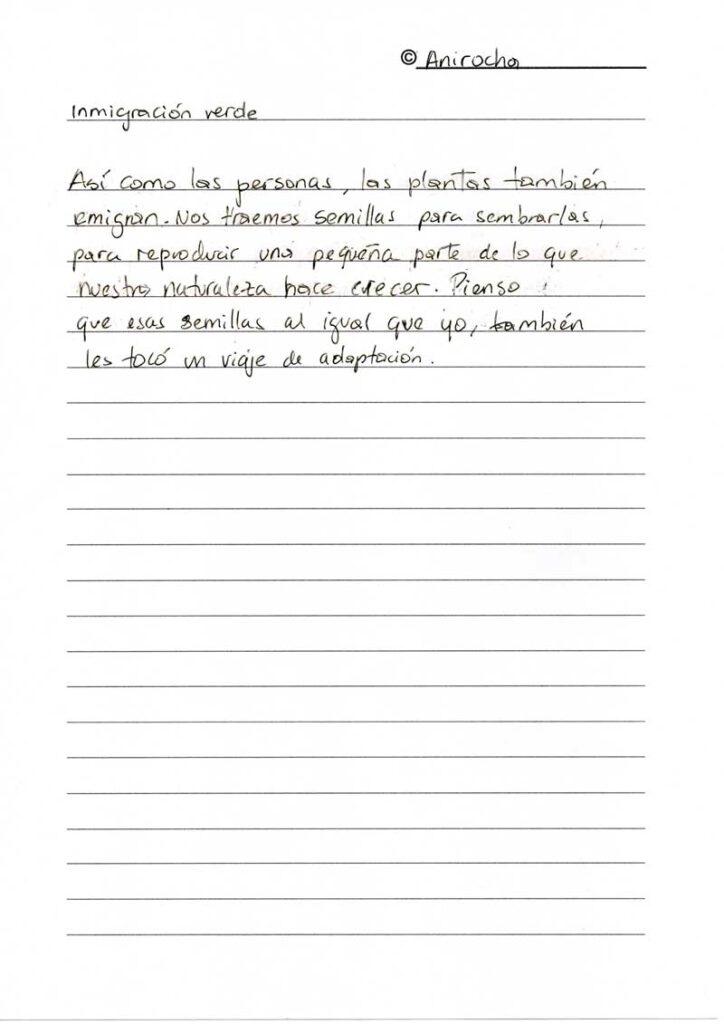 © Anirocha
Inmigración verde
Así como las personas, las plantas también
emigran. Nos traemos semillas para sembrarlas,
para reproducir una pequeña parte de lo que
nuestra naturaleza hace crecer. Pienso
que esas semillas al igual que yo, también
les tocó un viaje de adaptación.